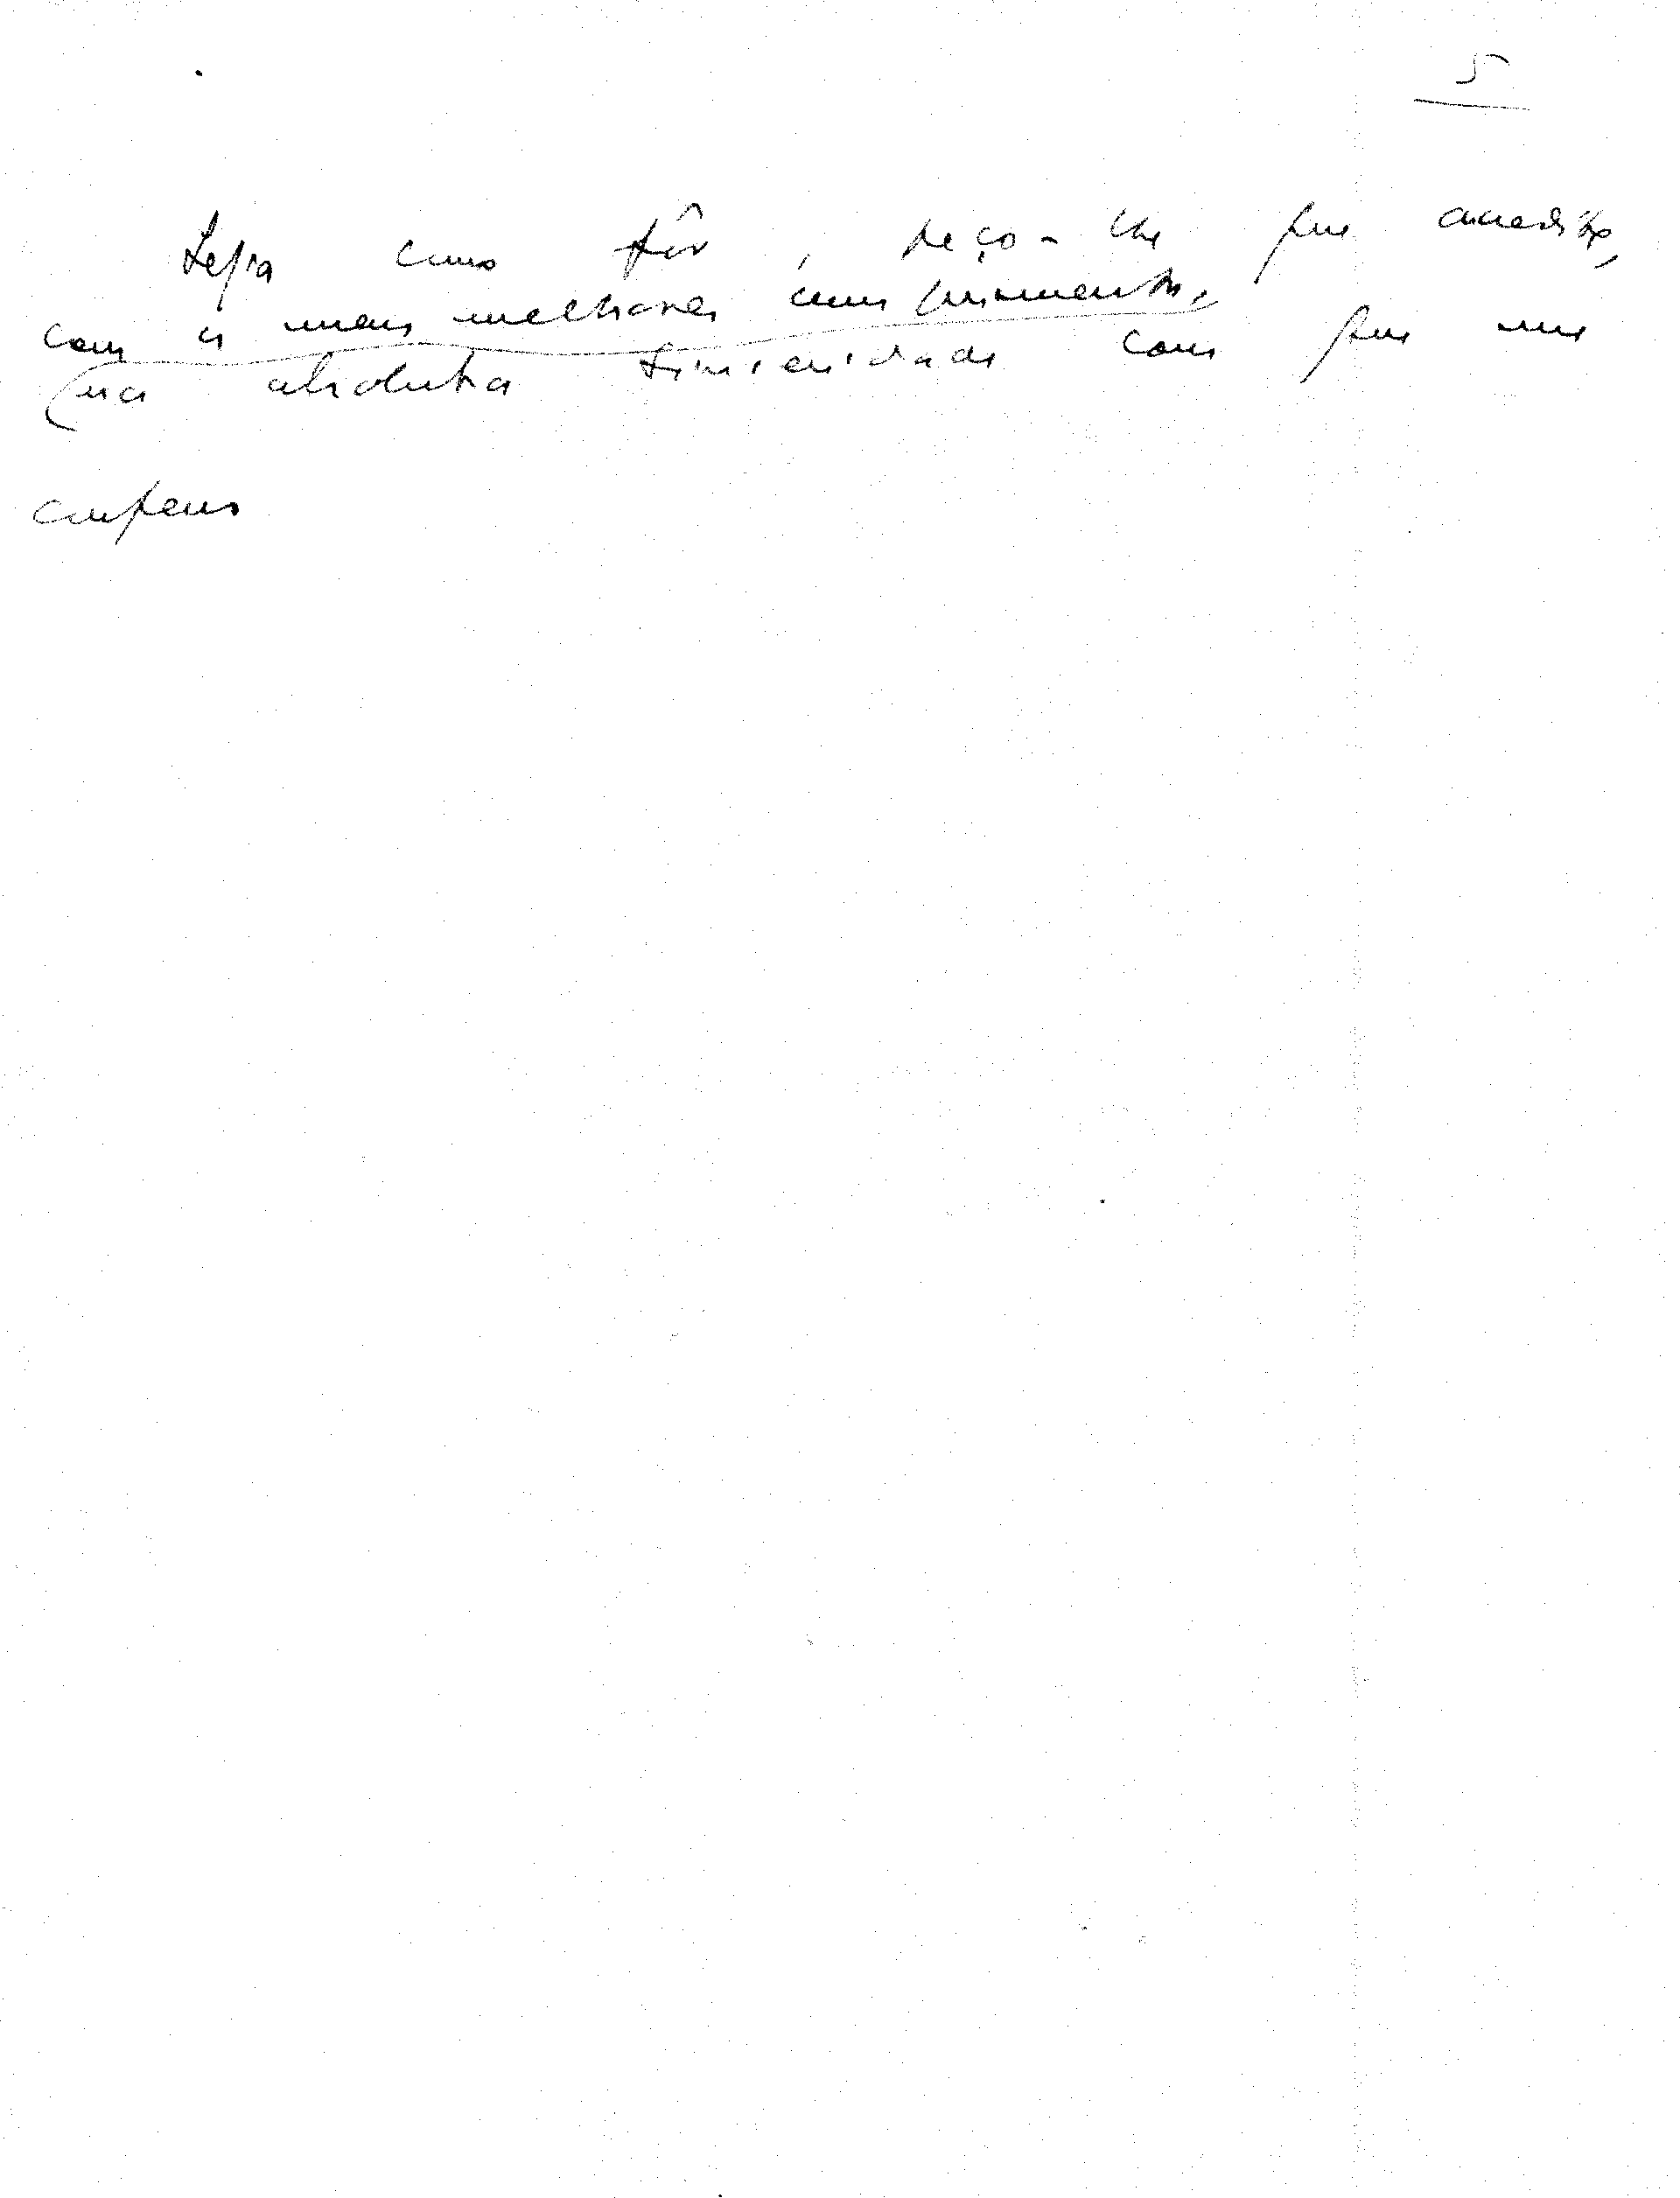 5
Seja como fôr, peço-lhe que acredite,
com os meus melhores cumprimentos,
na absoluta sinceridade com que me
confesso